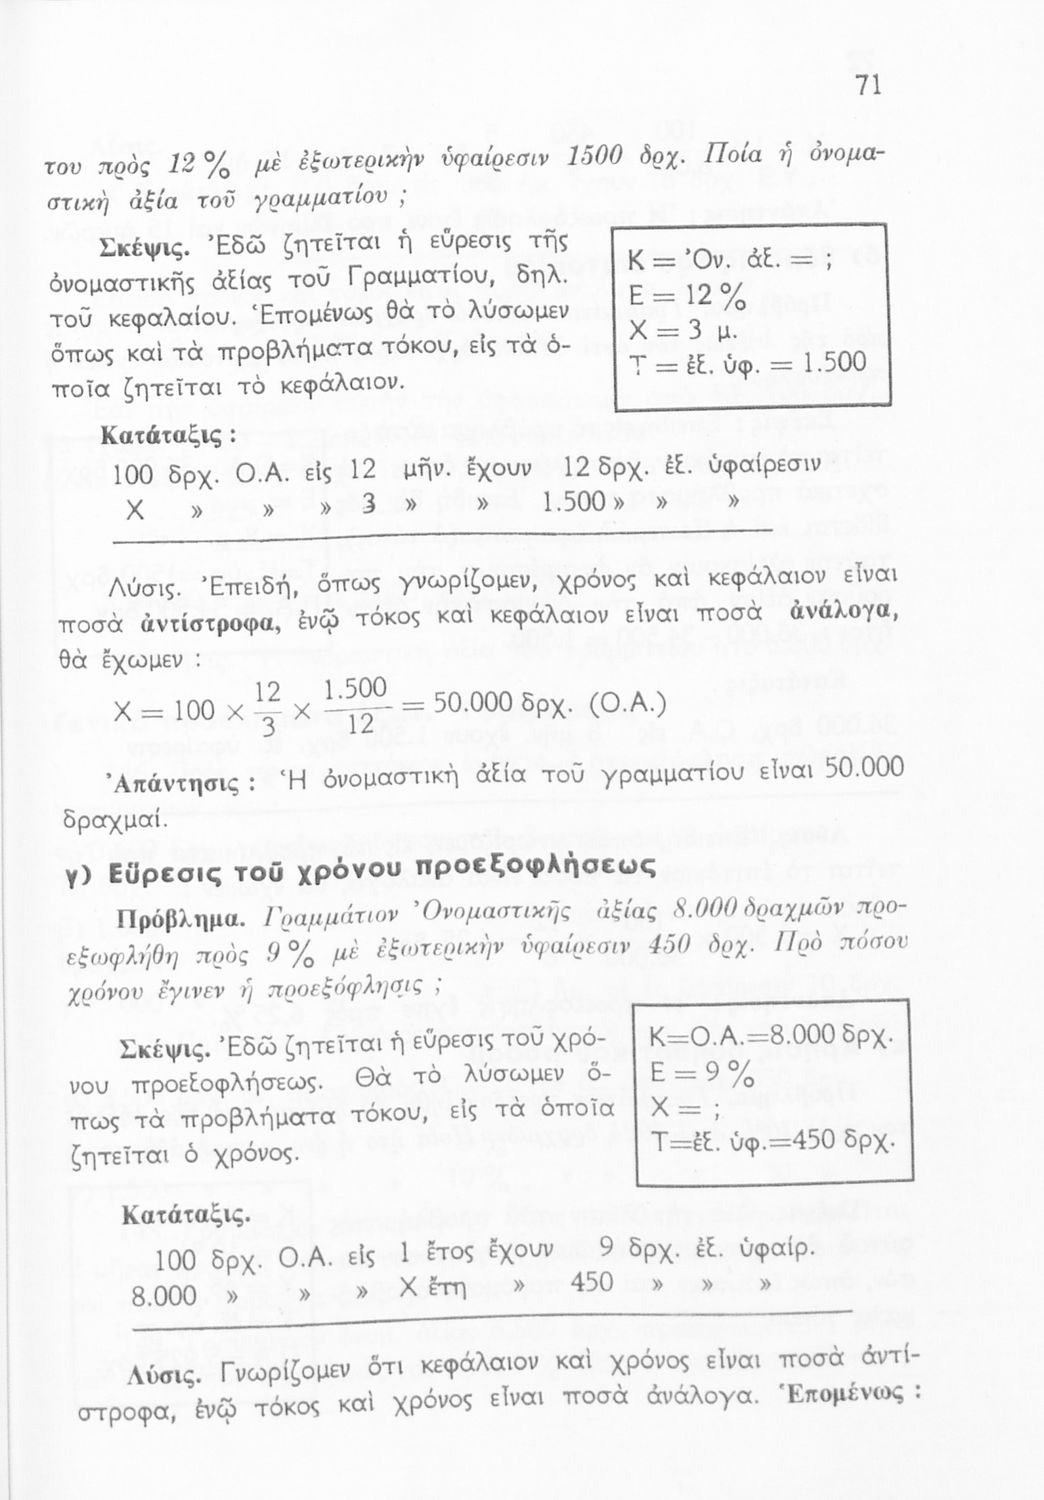 71
του πρὸς 12 % μὲ ἐξωτερικὴν ὑφαίρεσιν 1500 δρχ. Ποία ἡ ὀνομα-
στικὴ ἀξία τοῦ γραμματίου ;
Σκέψις. Ἐδῶ ζητεῖται ἡ εὕρεσις τῆς
ὀνομαστικῆς ἀξίας τοῦ Γραμματίου, δηλ.
τοῦ κεφαλαίου. Ἑπομένως θὰ τὸ λύσωμεν
ὅπως καὶ τὰ προβλήματα τόκου, εἰς τὰ ὁ-
ποῖα ζητεῖται τὸ κεφάλαιον.
Κ = Ὀν. ἀξ. = ;
Ε = 12 %
Χ = 3 μ.
Τ = ἐξ. ὑφ. = 1.500
Κατάταξις :
100 δρχ. Ο.Α. εἰς 12 μῆν. ἔχουν 12 δρχ. ἐξ. ὑφαίρεσιν
Χ » » » 3 » » 1.500 » » »
Λύσις. Ἐπειδή, ὅπως γνωρίζομεν, χρόνος καὶ κεφάλαιον εἶναι
ποσὰ ἀντίστροφα, ἐνῷ τόκος καὶ κεφάλαιον εἶναι ποσὰ ἀνάλογα,
θὰ ἔχωμεν :
Χ = 100 × 12/3 × 1.500/12 = 50.000 δρχ. (Ο.Α.)
Ἀπάντησις : Ἡ ὀνομαστικὴ ἀξία τοῦ γραμματίου εἶναι 50.000
δραχμαί.
γ) Εὕρεσις τοῦ χρόνου προεξοφλήσεως
Πρόβλημα. Γραμμάτιον Ὀνομαστικῆς ἀξίας 8.000 δραχμῶν προ-
εξωφλήθη πρὸς 9 % μὲ ἐξωτερικὴν ὑφαίρεσιν 450 δρχ. Πρὸ πόσου
χρόνου ἔγινεν ἡ προεξόφλησις ;
Σκέψις. Ἐδῶ ζητεῖται ἡ εὕρεσις τοῦ χρό-
νου προεξοφλήσεως. Θὰ τὸ λύσωμεν ὅ-
πως τὰ προβλήματα τόκου, εἰς τὰ ὁποῖα
ζητεῖται ὁ χρόνος.
Κ=Ο.Α.=8.000 δρχ.
Ε = 9 %
Χ = ;
Τ=ἐξ. ὑφ.=450 δρχ.
Κατάταξις.
100 δρχ. Ο.Α. εἰς 1 ἔτος ἔχουν 9 δρχ. ἐξ. ὑφαίρ.
8.000 » » » Χ ἔτη » 450 » » »
Λύσις. Γνωρίζομεν ὅτι κεφάλαιον καὶ χρόνος εἶναι ποσὰ ἀντί-
στροφα, ἐνῷ τόκος καὶ χρόνος εἶναι ποσὰ ἀνάλογα. Ἑπομένως :